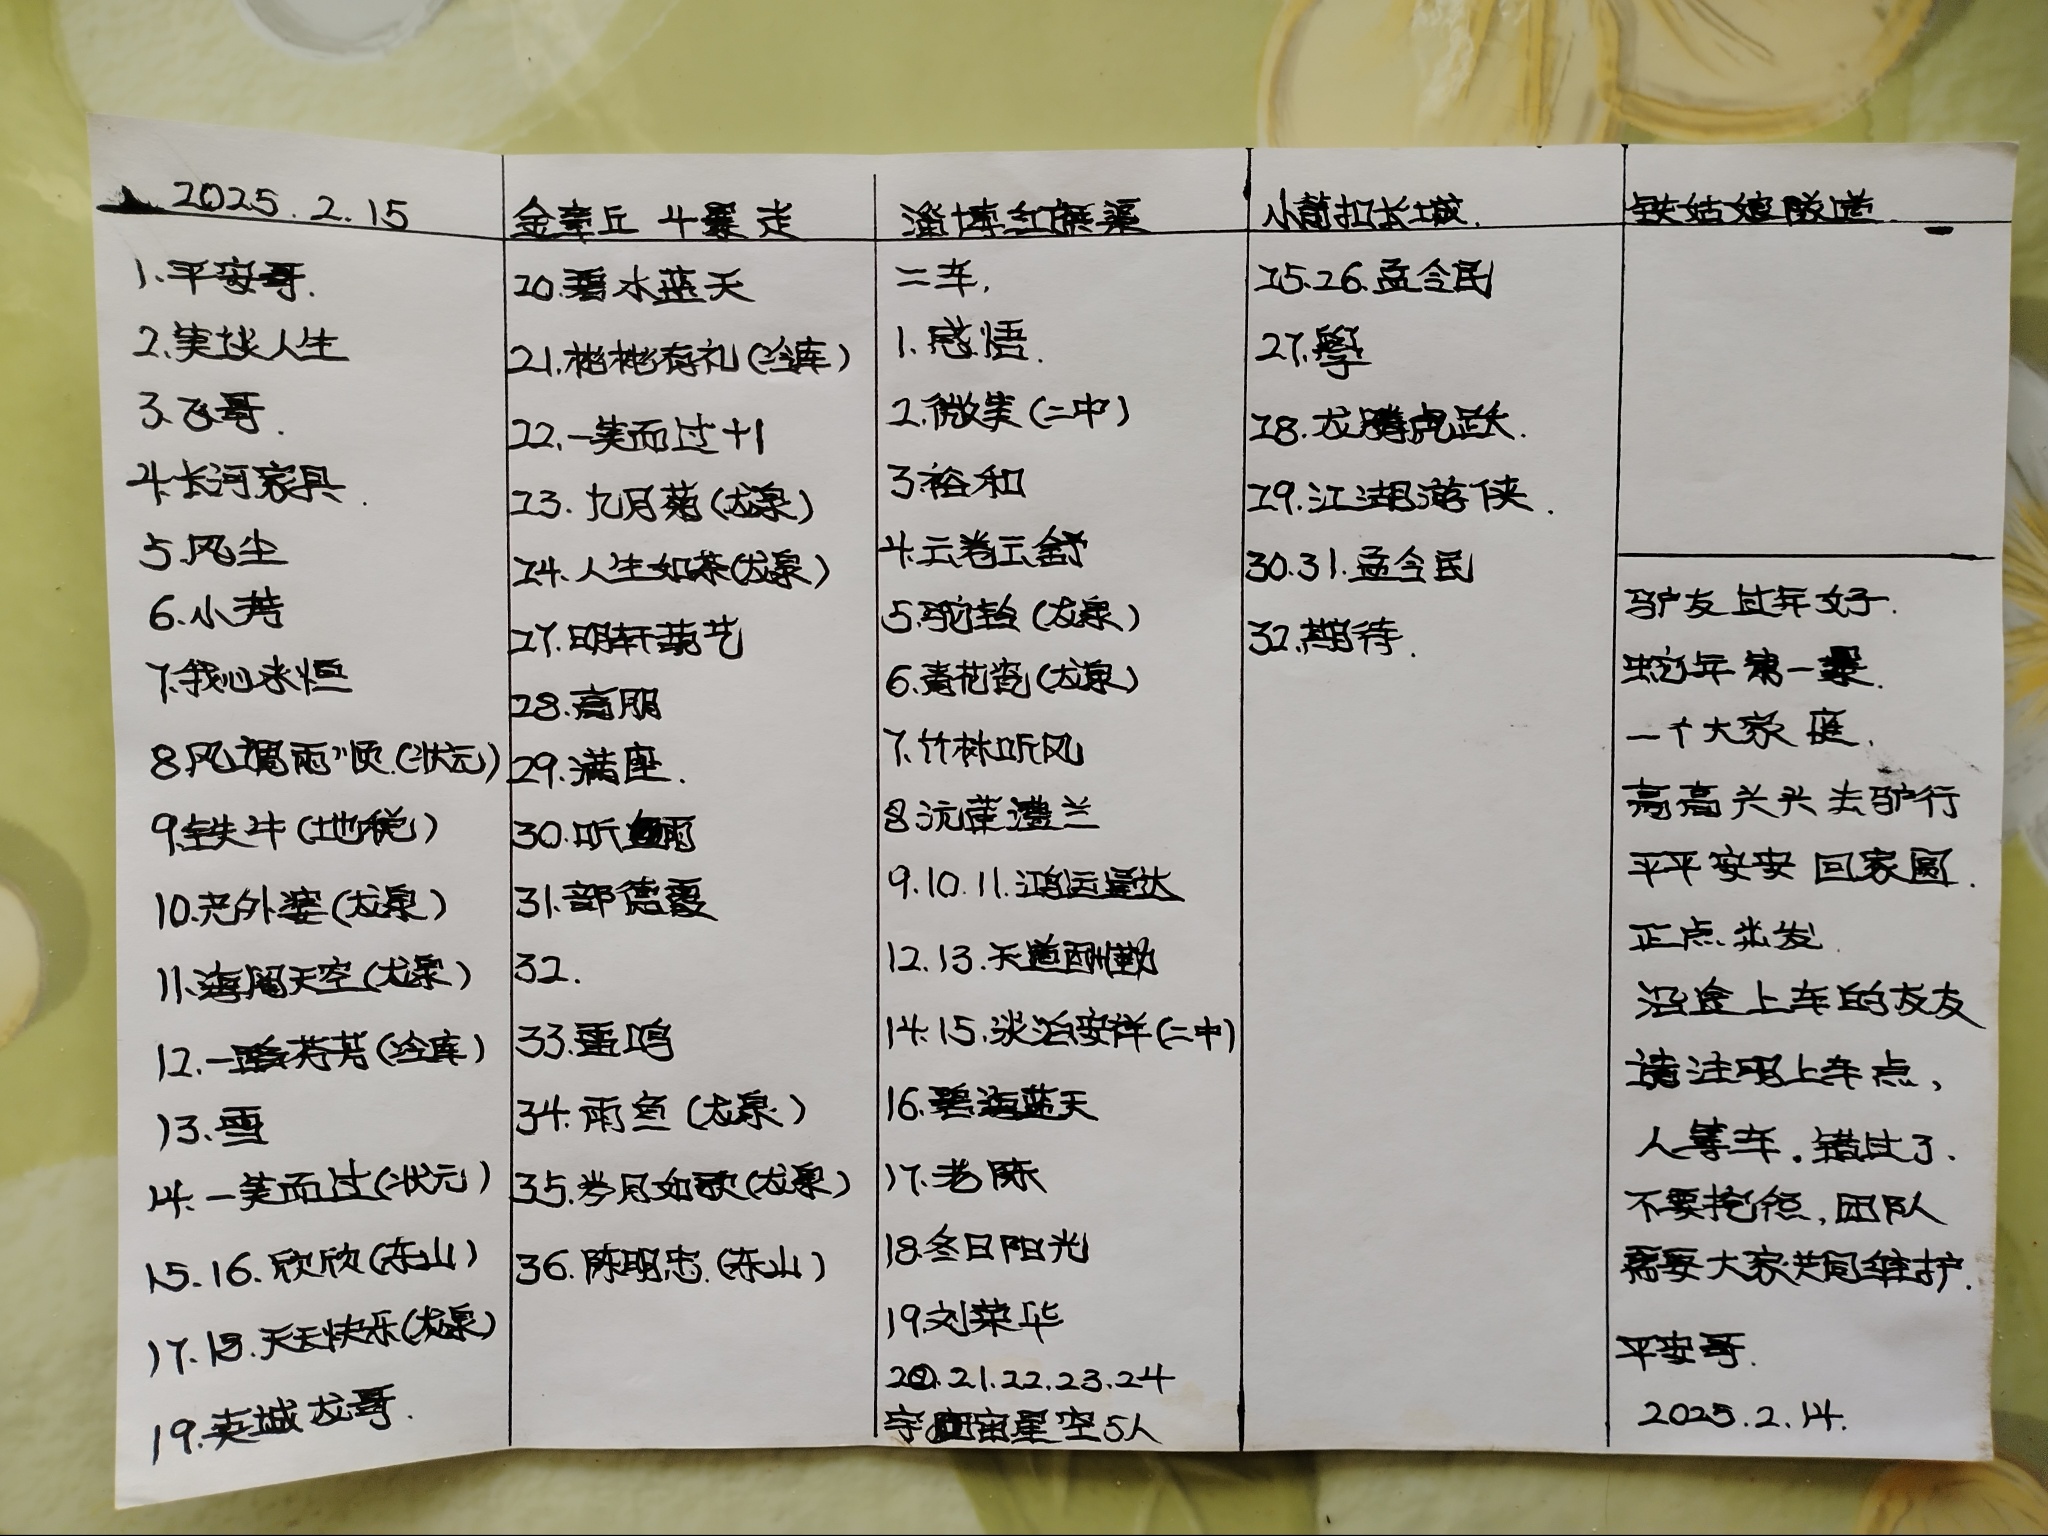 2025.2.15
1.平安哥.
2.笑谈人生
3.飞哥.
4.长河家具.
5.风尘
6.小芳
7.我心永恒
8.风调雨顺.(状元)
9.铁牛(地税)
10.老外婆(龙泉)
11.海阔天空(龙泉)
12.一路芬芳(冷库)
13.雪
14.一笑而过(状元)
15.16.欣欣(东山)
17.18.天天快乐(龙泉)
19.英城龙哥.
金章丘 斗暴走
20.碧水蓝天
21.彬彬有礼(冷库)
22.一笑而过十1
23.九月菊(龙泉)
24.人生如茶(龙泉)
27.明轩苑艺
28.高朋
29.满座.
30.听雨
31.部德霞
32.
33.雷鸣
34.雨鱼(龙泉)
35.岁月如歌(龙泉)
36.陈明忠.(东山)
淄博红旗渠
二车.
1.感悟.
2.微笑(二中)
3.裕和
4.云卷云舒
5.驼铃(龙泉)
6.青花瓷(龙泉)
7.竹林听风
8.沅芷澧兰
9.10.11.鸿运通达
12.13.天道酬勤
14.15.淡泊安祥(二中)
16.碧海蓝天
17.老陈
18.冬日阳光
19.刘荣华
20.21.22.23.24
宇宙星空5人
小箭扣长城.
25.26.孟令民
27.學
28.龙腾虎跃.
29.江湖游侠.
30.31.孟令民
32.期待.
铁姑娘隧道.
驴友过年好.
蛇年第一暴.
一个大家庭.
高高兴兴去驴行
平平安安回家圆.
正点出发.
沿途上车的友友
请注明上车点,
人等车.错过了.
不要抱怨,团队
需要大家共同维护.
平安哥.
2025.2.14.